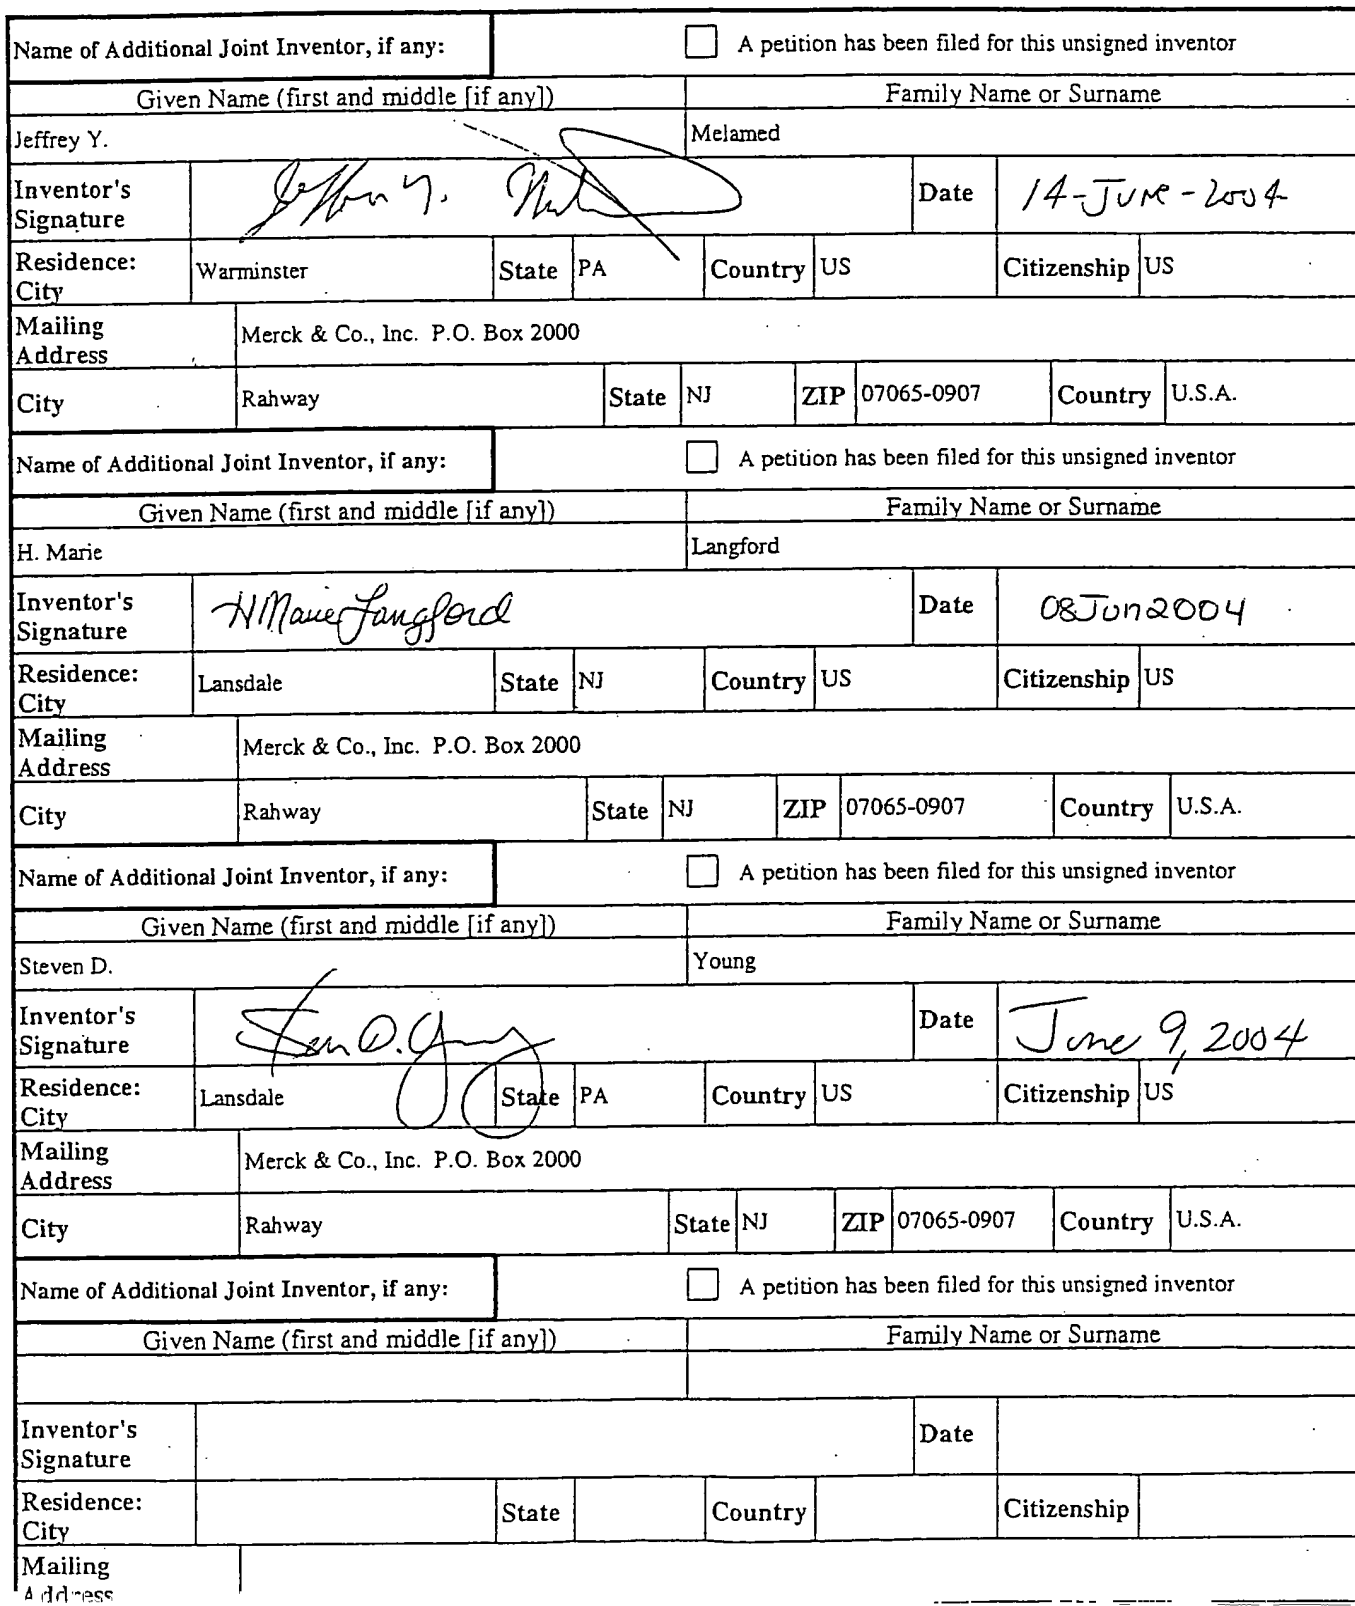 Name of Additional Joint Inventor, if any: A petition has been filed for this unsigned inventor
Given Name (first and middle [if any]) Family Name or Surname
Jeffrey Y. Melamed
Inventor's Signature Date 14-June-2004
Residence: City Warminster State PA Country US Citizenship US
Mailing Address Merck & Co., Inc. P.O. Box 2000
City Rahway State NJ ZIP 07065-0907 Country U.S.A.
Name of Additional Joint Inventor, if any: A petition has been filed for this unsigned inventor
Given Name (first and middle [if any]) Family Name or Surname
H. Marie Langford
Inventor's Signature H Marie Langford Date 08Jun2004
Residence: City Lansdale State NJ Country US Citizenship US
Mailing Address Merck & Co., Inc. P.O. Box 2000
City Rahway State NJ ZIP 07065-0907 Country U.S.A.
Name of Additional Joint Inventor, if any: A petition has been filed for this unsigned inventor
Given Name (first and middle [if any]) Family Name or Surname
Steven D. Young
Inventor's Signature Date June 9, 2004
Residence: City Lansdale State PA Country US Citizenship US
Mailing Address Merck & Co., Inc. P.O. Box 2000
City Rahway State NJ ZIP 07065-0907 Country U.S.A.
Name of Additional Joint Inventor, if any: A petition has been filed for this unsigned inventor
Given Name (first and middle [if any]) Family Name or Surname
Inventor's Signature Date
Residence: City State Country Citizenship
Mailing Address